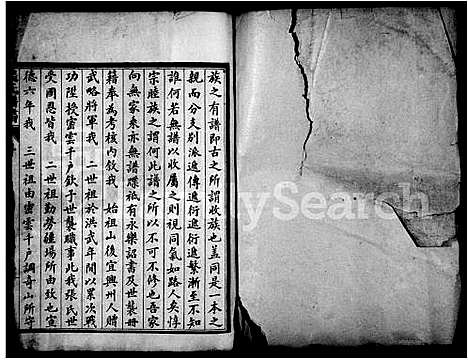 族之有譜即古之所謂收族也蓋同是一本之
親而分支別派遠傳遞衍遞衍遞繁漸至不知
誰何若無譜以收屬之則視同氣如路人矣惇
宗睦族之謂何此譜之所以不可不修也吾家
向無家乘亦無譜牒祗有永樂詔書及世襲冊
籍奉為考核內敘我 始祖山後宜興州人贈
武略將軍我 二世祖於洪武年間以累次戰
功陞授蜜雲千戶欽予世襲職事此我張氏世
受國恩皆我 二世祖勤勞疆場所由致也宣
德六年我 三世祖由蜜雲千戶調奇山所守
MySearch